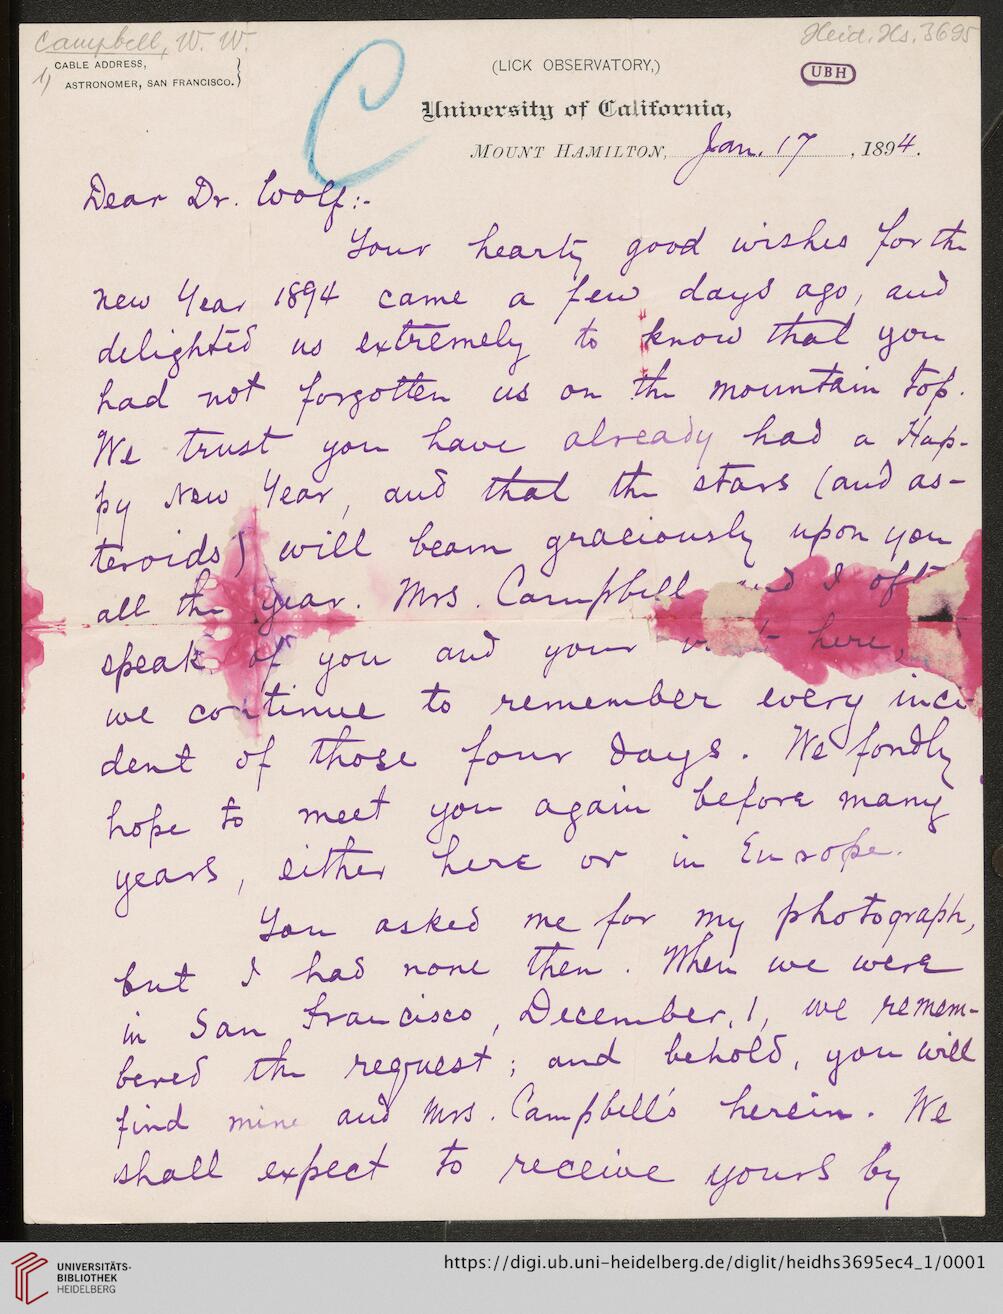 Campbell, W. W.
Heid. Hs. 3695
1)
CABLE ADDRESS,
ASTRONOMER, SAN FRANCISCO.}
(LICK OBSERVATORY,)
UBH
C
University of California,
MOUNT HAMILTON, Jan. 17, 1894.
Dear Dr. Wolf:-
Your hearty good wishes for the
new Year 1894 came a few days ago, and
delighted us extremely to know that you
had not forgotten us on the mountain top.
We trust you have already had a Hap-
py New Year, and that the stars (and as-
teroids) will beam graciously upon you
all the year. Mrs. Campbell and I oft
speak of you and your here,
we continue to remember every inci-
dent of those four days. We fondly
hope to meet you again before many
years, either here or in Europe.
You asked me for my photograph,
but I had none then. When we were
in San Francisco, December, 1, we remem-
bered the request; and behold, you will
find mine and Mrs. Campbell's herein. We
shall expect to receive yours by
UNIVERSITÄTS-
BIBLIOTHEK
HEIDELBERG
https://digi.ub.uni-heidelberg.de/diglit/heidhs3695ec4_1/0001